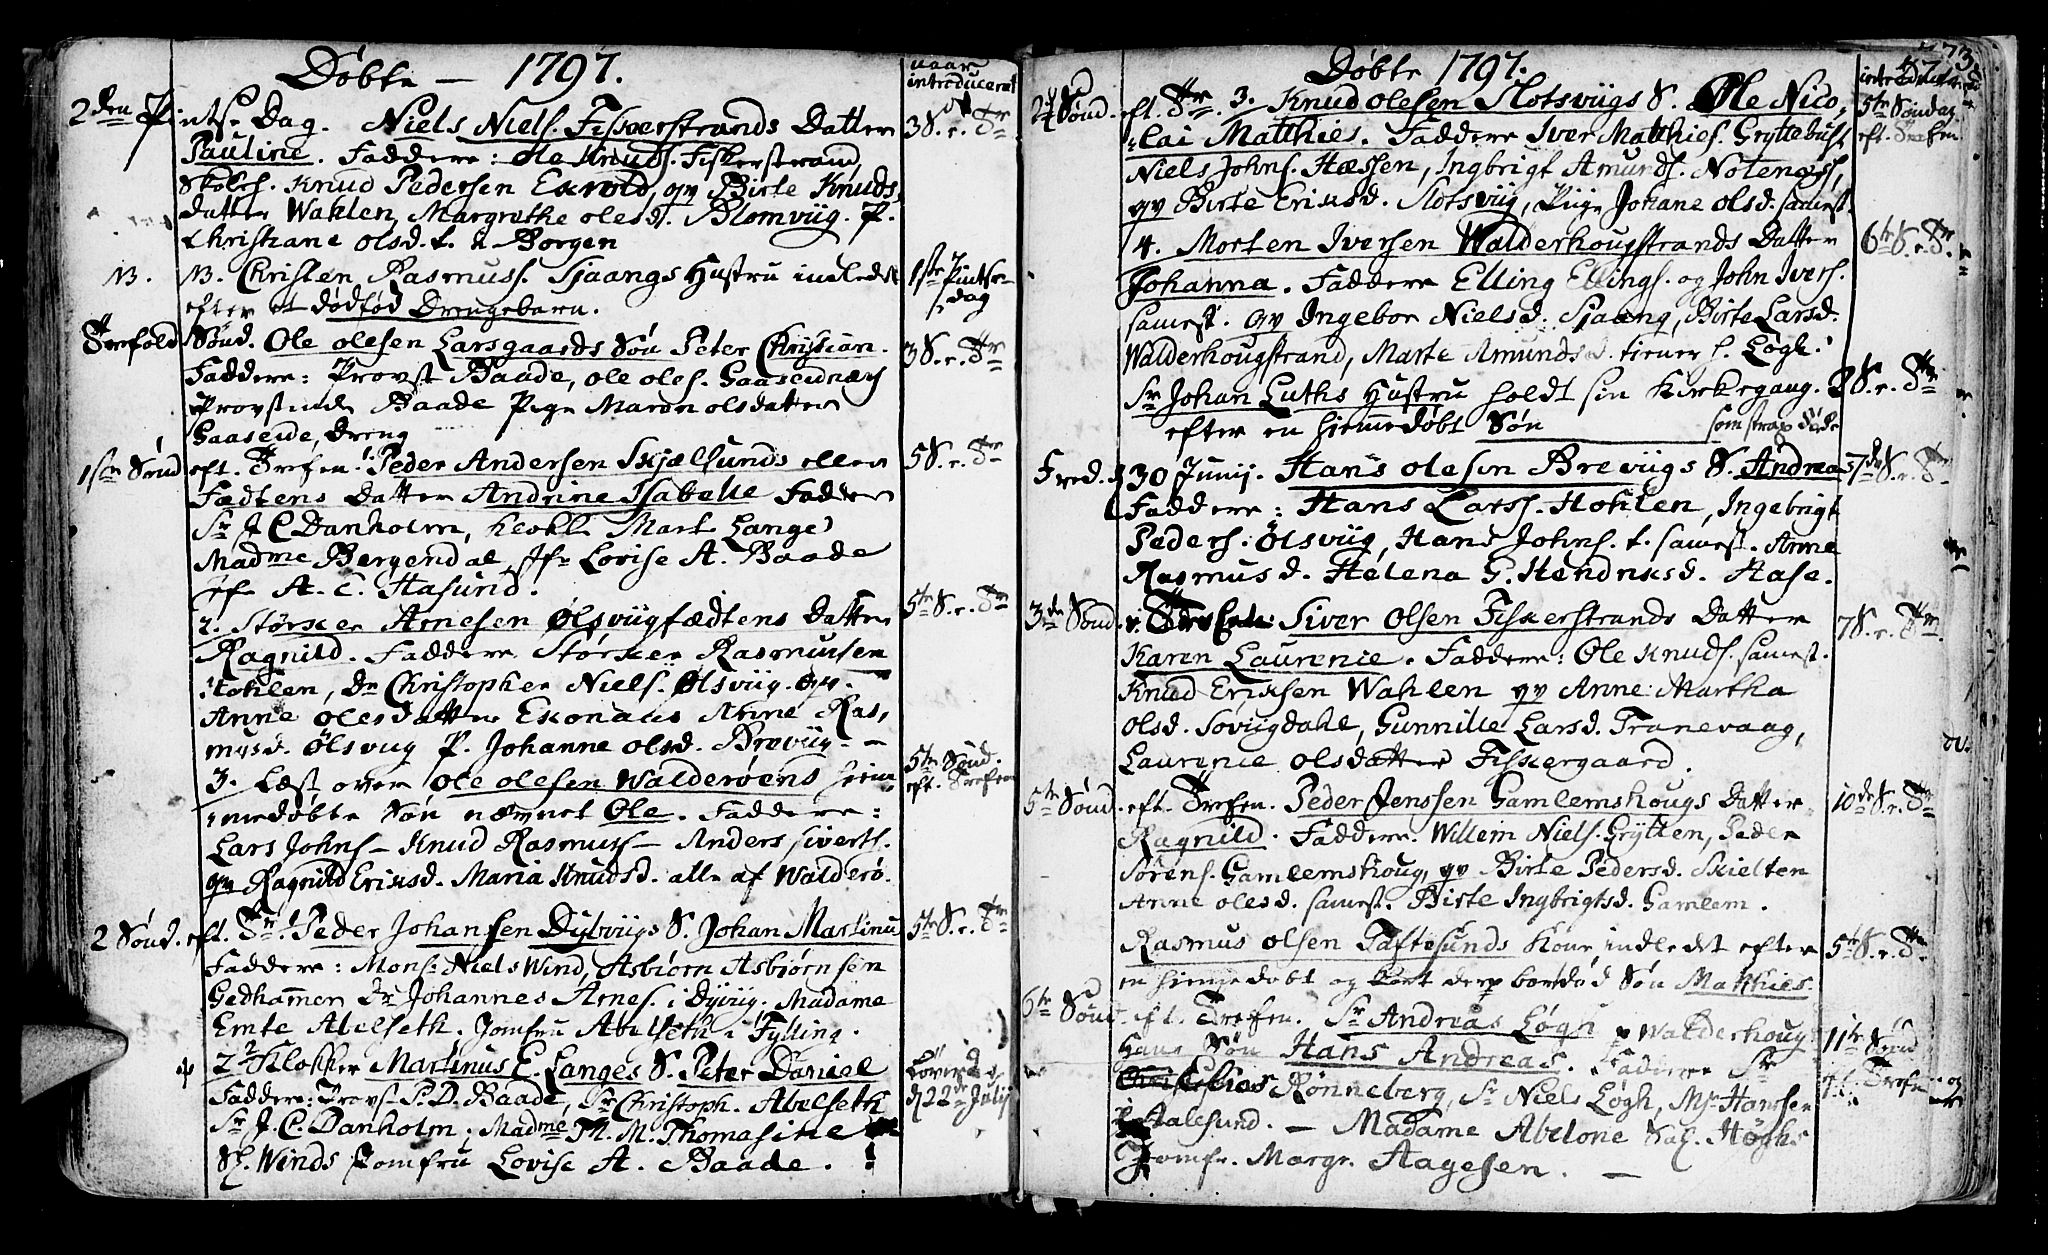 Döbte — 1797.
naar introduceret
2den Pintse Dag. Niels Niels. Fiskerstrands Datter
3 S. e. Tr
Pauline. Faddere: Ole Knuds. Fiskerstrand,
Skoleh. Knud Pedersen Exrold, qv Birte Knuds
datter Wahlen, Margrethe olesd. Blomviig. P.
Christiane olsd. t. Borgen
NB. NB. Christen Rasmuss. Sjaangs Hustru indledt
1ste Pintse-
efter et dödföd Drengebarn.
dag
Trefold. Sönd. Ole olesen Larsgaards Sön Peter Christian.
3 S. e. Tr
Faddere: Provst Baade, ole oles. Gaaseidnæs
Provstinde Baade Pige Maren olsdatter
Gaaseide, Dreng
1ste Sönd eft. Trefen. 1. Peder Andersen Skjælsunds eller
5 S. e. Tr
Fædtens Datter Andrine Isabelle Faddere
Sr J C Danholm, Klokk. Mart. Lange
Madme Bergendal, Jfr Lovise A. Baade
Jfr A. C. Hasund.
5te S. e. Tr
2. Störker Arnesen Ölsviigfædtens Datter
Ragnild. Faddere Störker Rasmussen
Hohlen, Dr Christopher Niels. Ölsviig. qv.
Anne olesdatter Exonaes Anne Ras,
musd. Ölsviig P. Johanne olsd. Breviig. —
5te Sönd.
3. Læst over Ole olesen Walderöens hiem
eft. Trefen
medöbte Sön nævnet Ole. Faddere:
Lars Johns — Knud Rasmuss — Anders Siverts.
qv Ragnild Eriksd. Maria Knudsd. alle af Walderö.
2 Sönd. eft. Tr. 1. Peder Johansen Dybviigs S. Johan Martinu
5te S. e. Tr
Faddere: Monsr Niels Wind, Asbiörn Asbjørnsen
Gedhammer Dr Johannes Arnes. i Dyviig. Madame
Emte Abelseth. Jomfru Abelseth i Fylling.
2. Klokker Martinus E. Langes S. Peter Daniel
Löver
Faddere: Provst P. D. Baade, Sr Christoph. Abelseth
d 22de Julij
Sr J. C. Danholm; Madme M. M. Thomasine
Sl. Winds Jomfru Lovise A. Baade.
Döbte 1797.
473
introduceret
2 Sönd. eft. Tr. 3. Knud olesen Slotsviigs S. Ole Nico,
5te Söndag
lai Matthies. Faddere Iver Matthies. Gryttebust
eft. Trefen.
Niels Johns. Hæssen, Ingbrigt Amunds. Notenæs,
qv Birte Eriksd. Slotsviig, Piige Johane olsd. samest.
4. Morten Iversen Walderhougstrands Datter
6te S. e. Tr
Johanna. Faddere Elling Ellings. og John Ivers.
samest. qv Ingebor Nielsd. Sjaang, Birte Larsd.
Walderhougstrand, Marte Amundsd. tiener h. Lögh.
Sr Johan Luths Hustru holdt sin Kirkegang.
8 S. e. Tr
efter en hiemmedöbt Sön som strax döde
Fred. d 30 Junij. Hans olesen Breviigs S. Andreas
7de S. e. Tr
Faddere: Hans Larss. Hohlen, Ingebrigt
Peders. Ölsviig, Hans Johns. t. samest. Anne
Rasmusd. Helena G. Hendriksd. Aase.
3de Sönd. Siver Olsen Fiskerstrands Datter
7 S. e. Tr.
Karen Laurencie. Faddere: Ole Knuds. samest.
Knud Eriksen Wahlen qv Anne Martha
olsd. Soviigdahl, Gunnille Larsd. Tranevaag,
Laurencie olsdatter Fiskergaard.
5te Sönd. eft. Trefen. Peder Jenssen Gamlemshougs Datter
10de S. e. Tr
Ragnild. Faddere. Willem Niels. Grytten, Peder
Sörens. Gamlemshoug, qv Birte Pedersd. Skielten
Anne olesd. samest. Birte Ingbrigtsd. Gamlem.
Rasmus olsen Taftesunds Kone, indledet efter
5te S. e. Tr.
en hiemedöbt og kort derp bortdöd Sön Matthies.
6te Sönd. eft. Trefen. Sr Andreas Lögh p Walderhoug
11te Sönd
Hans Sön Hans Andreas. Faddere Sr
eft. Trefen
Rönneberg, Sr Niels Lögh, Mr Hanssen
i Aalesund. — Madame Abelone Sal. Höghs
Jomfr. Margr. Aagesen. —